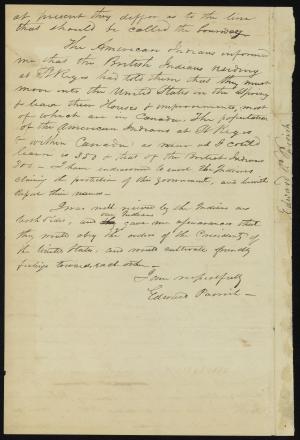 at present they differ as to the line
that should be called the boundary
The American Indians informed
me that the British Indians residing
at St Regis had told them that they must
move into the United States in the Spring
& leave their Houses & improvements, most
of which are in Canada. The population
of the American Indians at St Regis
& within Canada as near as I could
learn is 350 & that of the British Indians
I have endeavored to
claiming the protection of this government, and
their names.
I was well received by the Indians on
both sides, and our Indians gave me assurances that
they would obey the orders of the President of
the United States, and would cultivate friendly
feelings towards each other —
I am respectfully
Edward Parrish —
Edward Parrish